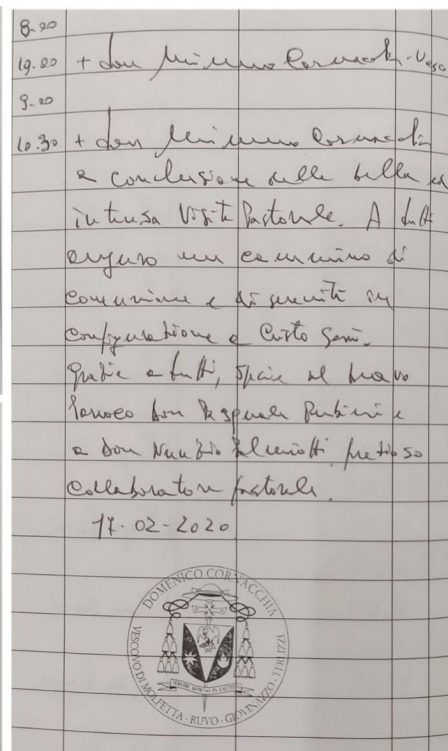 8.00
19.00 + don Mimmo Cornacchia - Vesc
9.00
10.30 + don Mimmo Cornacchia
a conclusione della bella ed
intensa Visita Pastorale. A tutti
auguro un cammino di
comunione e di serenità in
configurazione a Cristo Gesù.
Grazie a tutti, specie al bravo
Parroco don Pasquale Rubini e
a Don Nunzio Palmiotti, prezioso
collaboratore pastorale.
17-02-2020
DOMENICO CORNACCHIA
VESCOVO DI MOLFETTA - RUVO - GIOVINAZZO - TERLIZZI